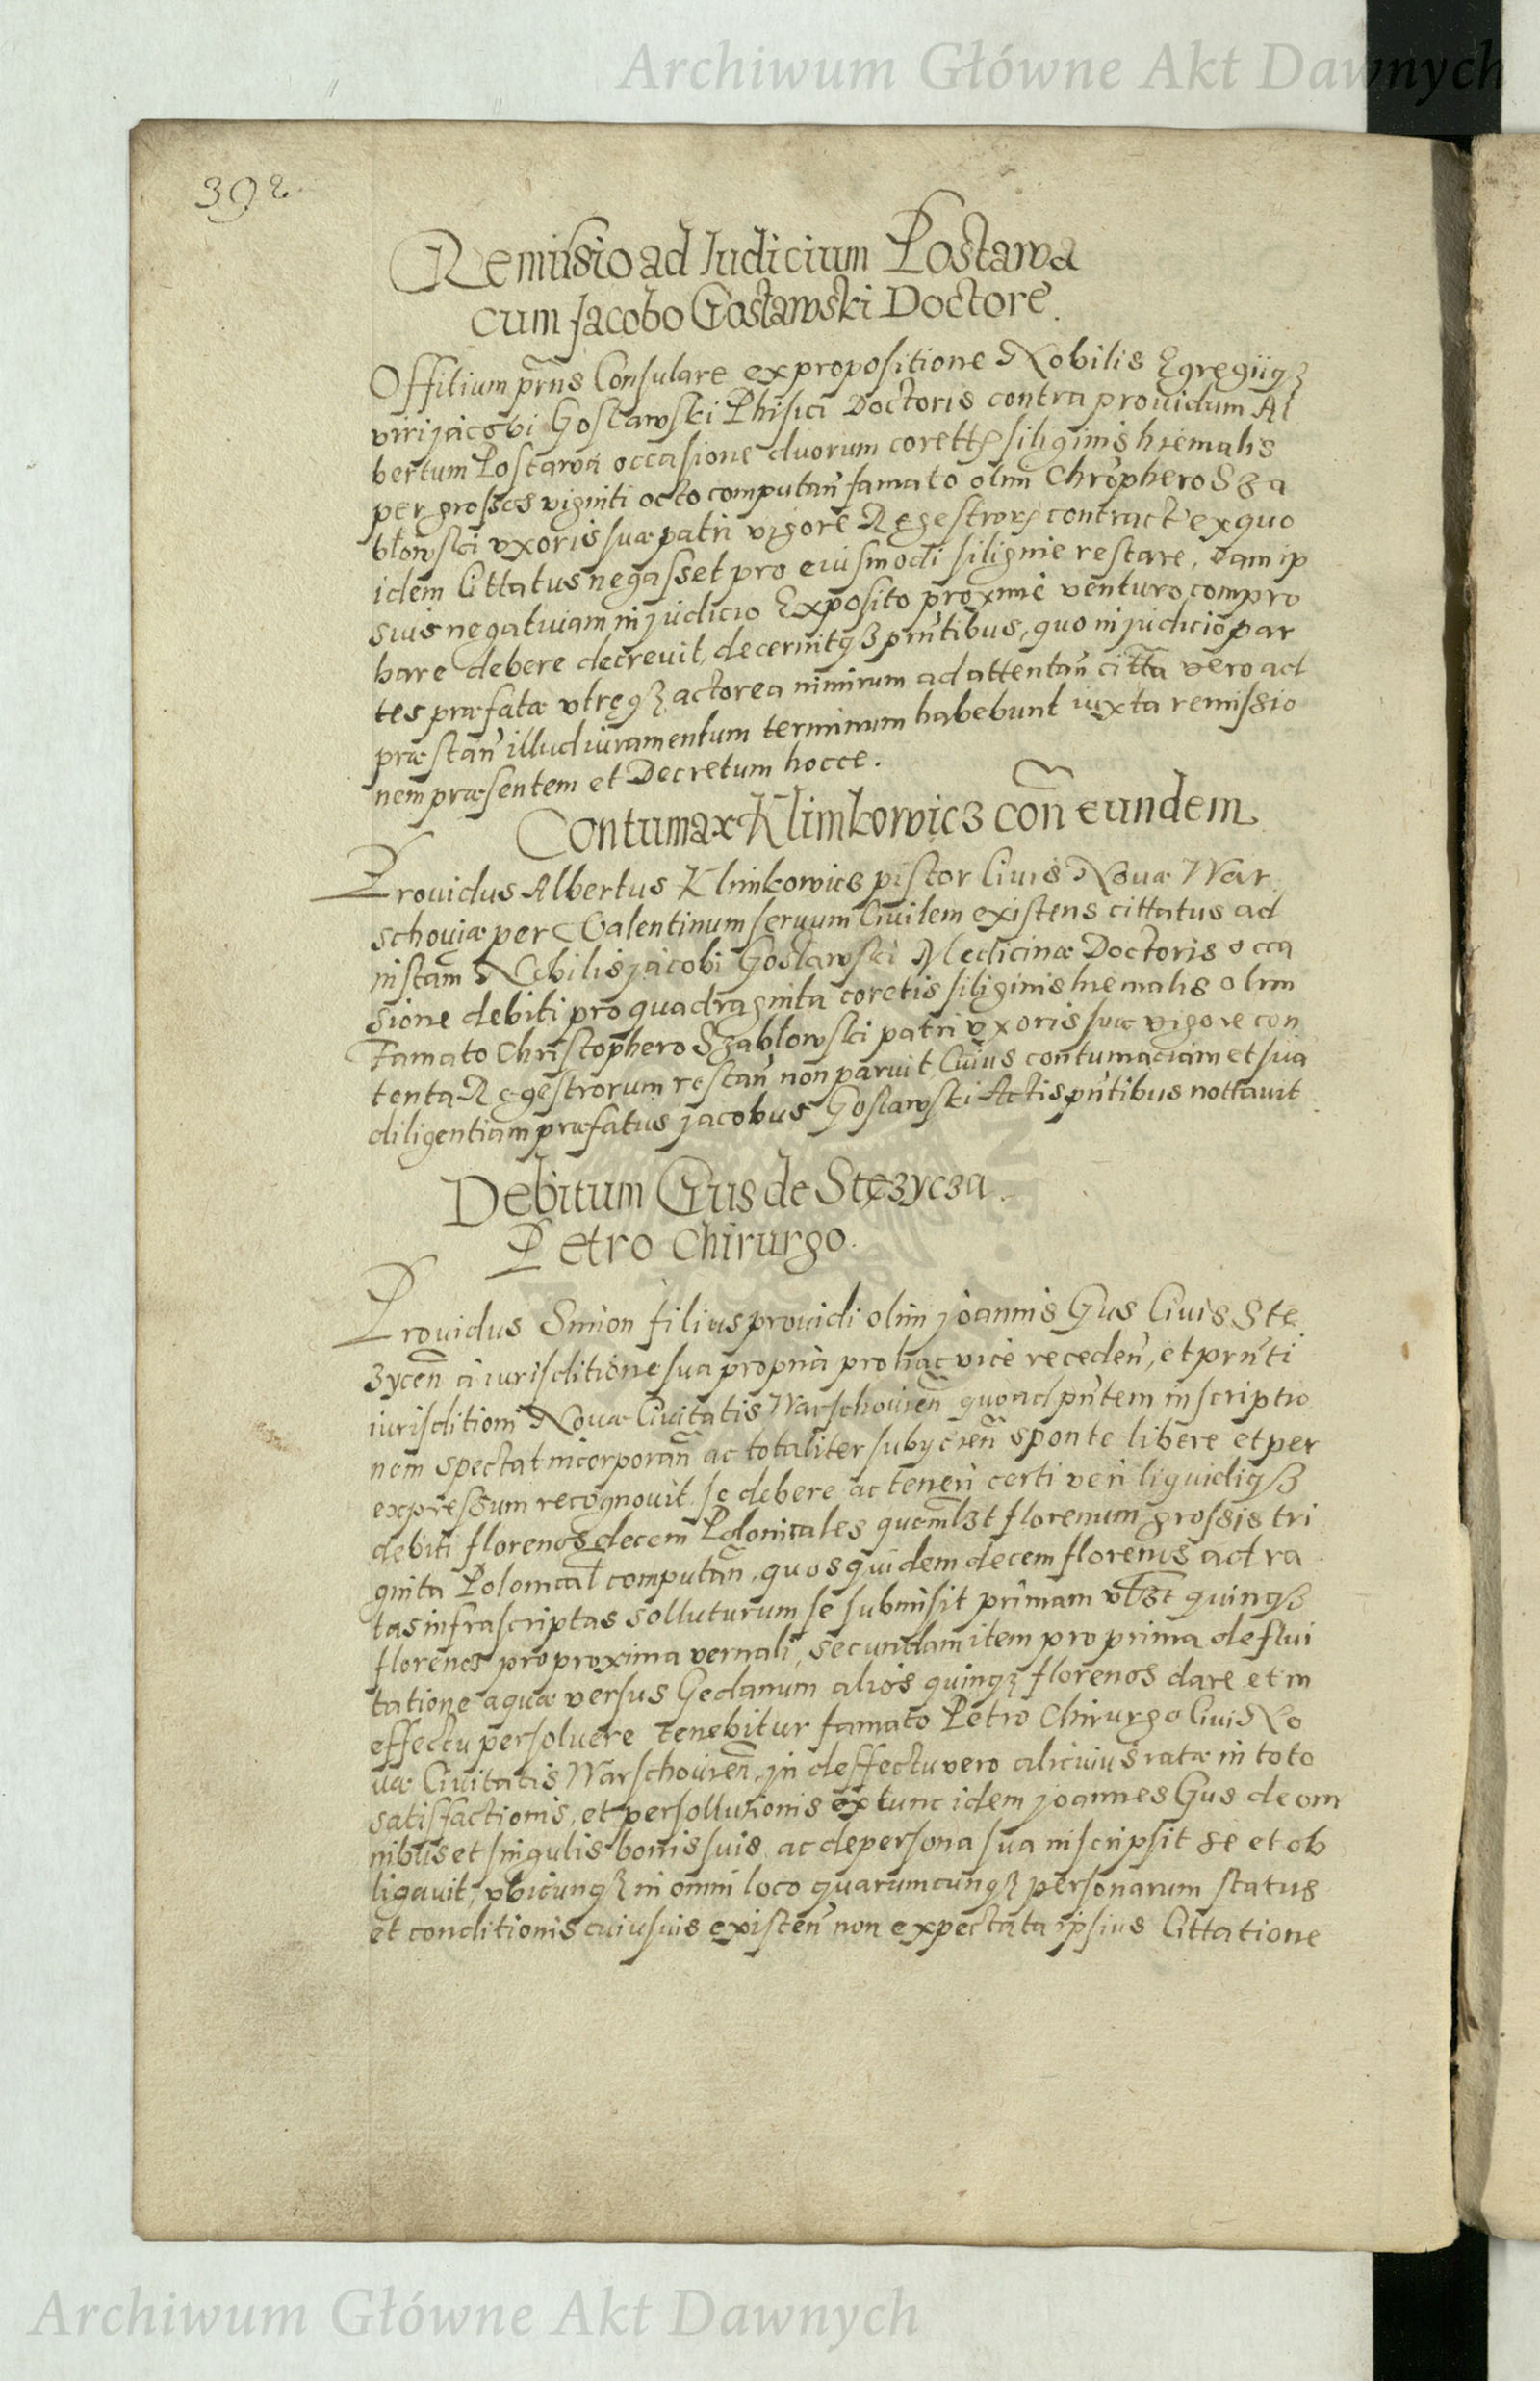 Archiwum Główne Akt Dawnych
392.
Remissio ad Iudicium Postawa
cum Jacobo Gostawski Doctore.
Offitium prñs Consulare ex propositione Nobilis Egregiiqȝ
viri jacobi Gostawski Phisici Doctoris contra prouidum Al
bertum Postawa occasione duorum corett siliginis hiemalis
per grossos viginti octo computañ famato olim Chrophero Sza
błowski vxoris suæ patri vigore Regestror contract ex quo
idem Cittatus negasset pro eiusmodi siligine restare, eam ip
sius negatiuam in judicio Exposito proxime venturo compro
bare debere decreuit, decernitqȝ prñtibus, quo in judicio par
tes præfatæ vtręqȝ actorea nimirum ad attentañ citta vero ad
præstañ illud iuramentum terminum habebunt iuxta remissio
nem præsentem et Decretum hocce.
Contumax Klimkowicz coñ eundem
Prouidus Albertus Klimkowicz pistor Ciuis Nouæ War
schouiæ per Valentinum seruum Ciuilem existens cittatus ad
instam Nobilis jacobi Gostawski Medicinæ Doctoris occa
sione debiti pro quadraginta coretis siliginis hiemalis olim
Famato Christophero Szabłowski patri vxoris suæ vigore con
tenta Regestrorum restañ non paruit, Cuius contumaciam et sua
diligentiam præfatus jacobus Gostawski Actis pñtibus nottauit
Debitum Gus de Stęzycza.
Petro Chirurgo.
Prouidus Simon filius prouidi olim joannis Gus Ciuis Stę
zyceñ a iurisditione sua propria pro hac vice recedeñ, et prñti
iurisditioni Nouæ Ciuitatis Warschouieñ quoad pñtem inscriptio
nem spectat incorporañ ac totaliter subycieñ sponte libere et per
expressum recognouit se debere ac teneri certi veri liquidiqȝ
debiti florenos decem Polonicales quemlȝt florenum grossis tri
ginta Polonical computañ, quos quidem decem florenos ad ra
tas infrascriptas solluturum se submisit primam vtȝt quinqȝ
florenos pro proxima vernali, secundam item pro prima deflui
tatione aquæ versus Gedanum alios quinqȝ florenos dare et in
effectu persoluere tenebitur famato Petro Chirurgo Ciui No
uæ Ciuitatis Warschouieñ, jn deffectu vero alicuius ratæ in toto
satisfactionis, et persollutionis ex tunc idem joannes Gus de om
nibus et singulis bonis suis, ac de persona sua inscripsit se et ob
ligauit, vbicunqȝ in omni loco quarumcunqȝ personarum status
et conditionis cuiusuis existeñ non expectata ipsius Cittatione
Archiwum Główne Akt Dawnych